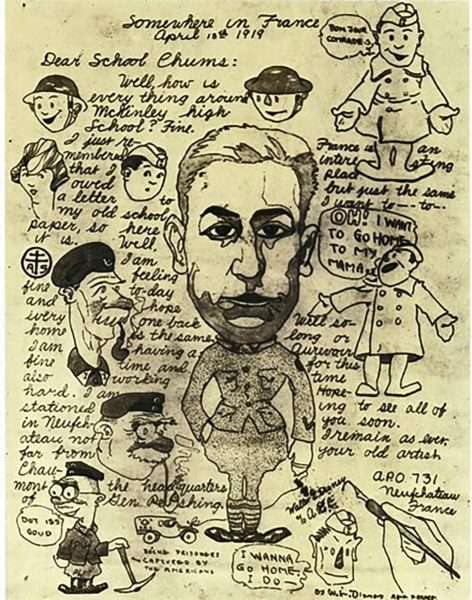 Somewhere in France
April 18th 1919
Dear School Chums:
Well, how is
every thing around
McKinley high
School? Fine.
I just re-
membered
that I
owed
a letter to
my old school
paper, so here
it is. Well
I am
feeling
fine to-day
and hope
every one back
home is the same
I am having a
fine time and
also working
hard. I am
stationed
in Neufch-
ateau not
far from
Chau-
mont the headquarters
of Gen. Pershing.
BON JOUR
COMRADE-S
France is an
intere sting
place
but just the same
I want to -- to--
OH! I WANT
TO GO HOME
TO MY
MAMA
Well so-
long or
Aurevoir
for this
time
Hope-
ing to see all of
you soon.
I remain as ever,
your old artist
Walt Disney
A.E.F.
APO 731
Neufchateau
France
DOT ISS
GOUD
BOCHE PRISONERS
CAPTURED BY
THE AMERICANS
I WANNA
GO HOME
I DO—
BY Walt Disney